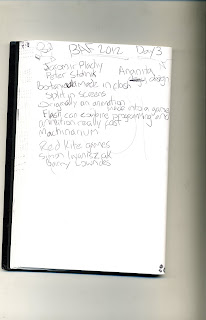 BAF 2012 Day 3
Jaromir Plachy
Peter Stehlik Amanita
design
Botanicula made in flash
Split in screens
Originally an animation
made into a game
Flash can combine programming and
animation really fast
Machinarium
Red Kite games
Simon Iwaniszak
Barry Lowndes